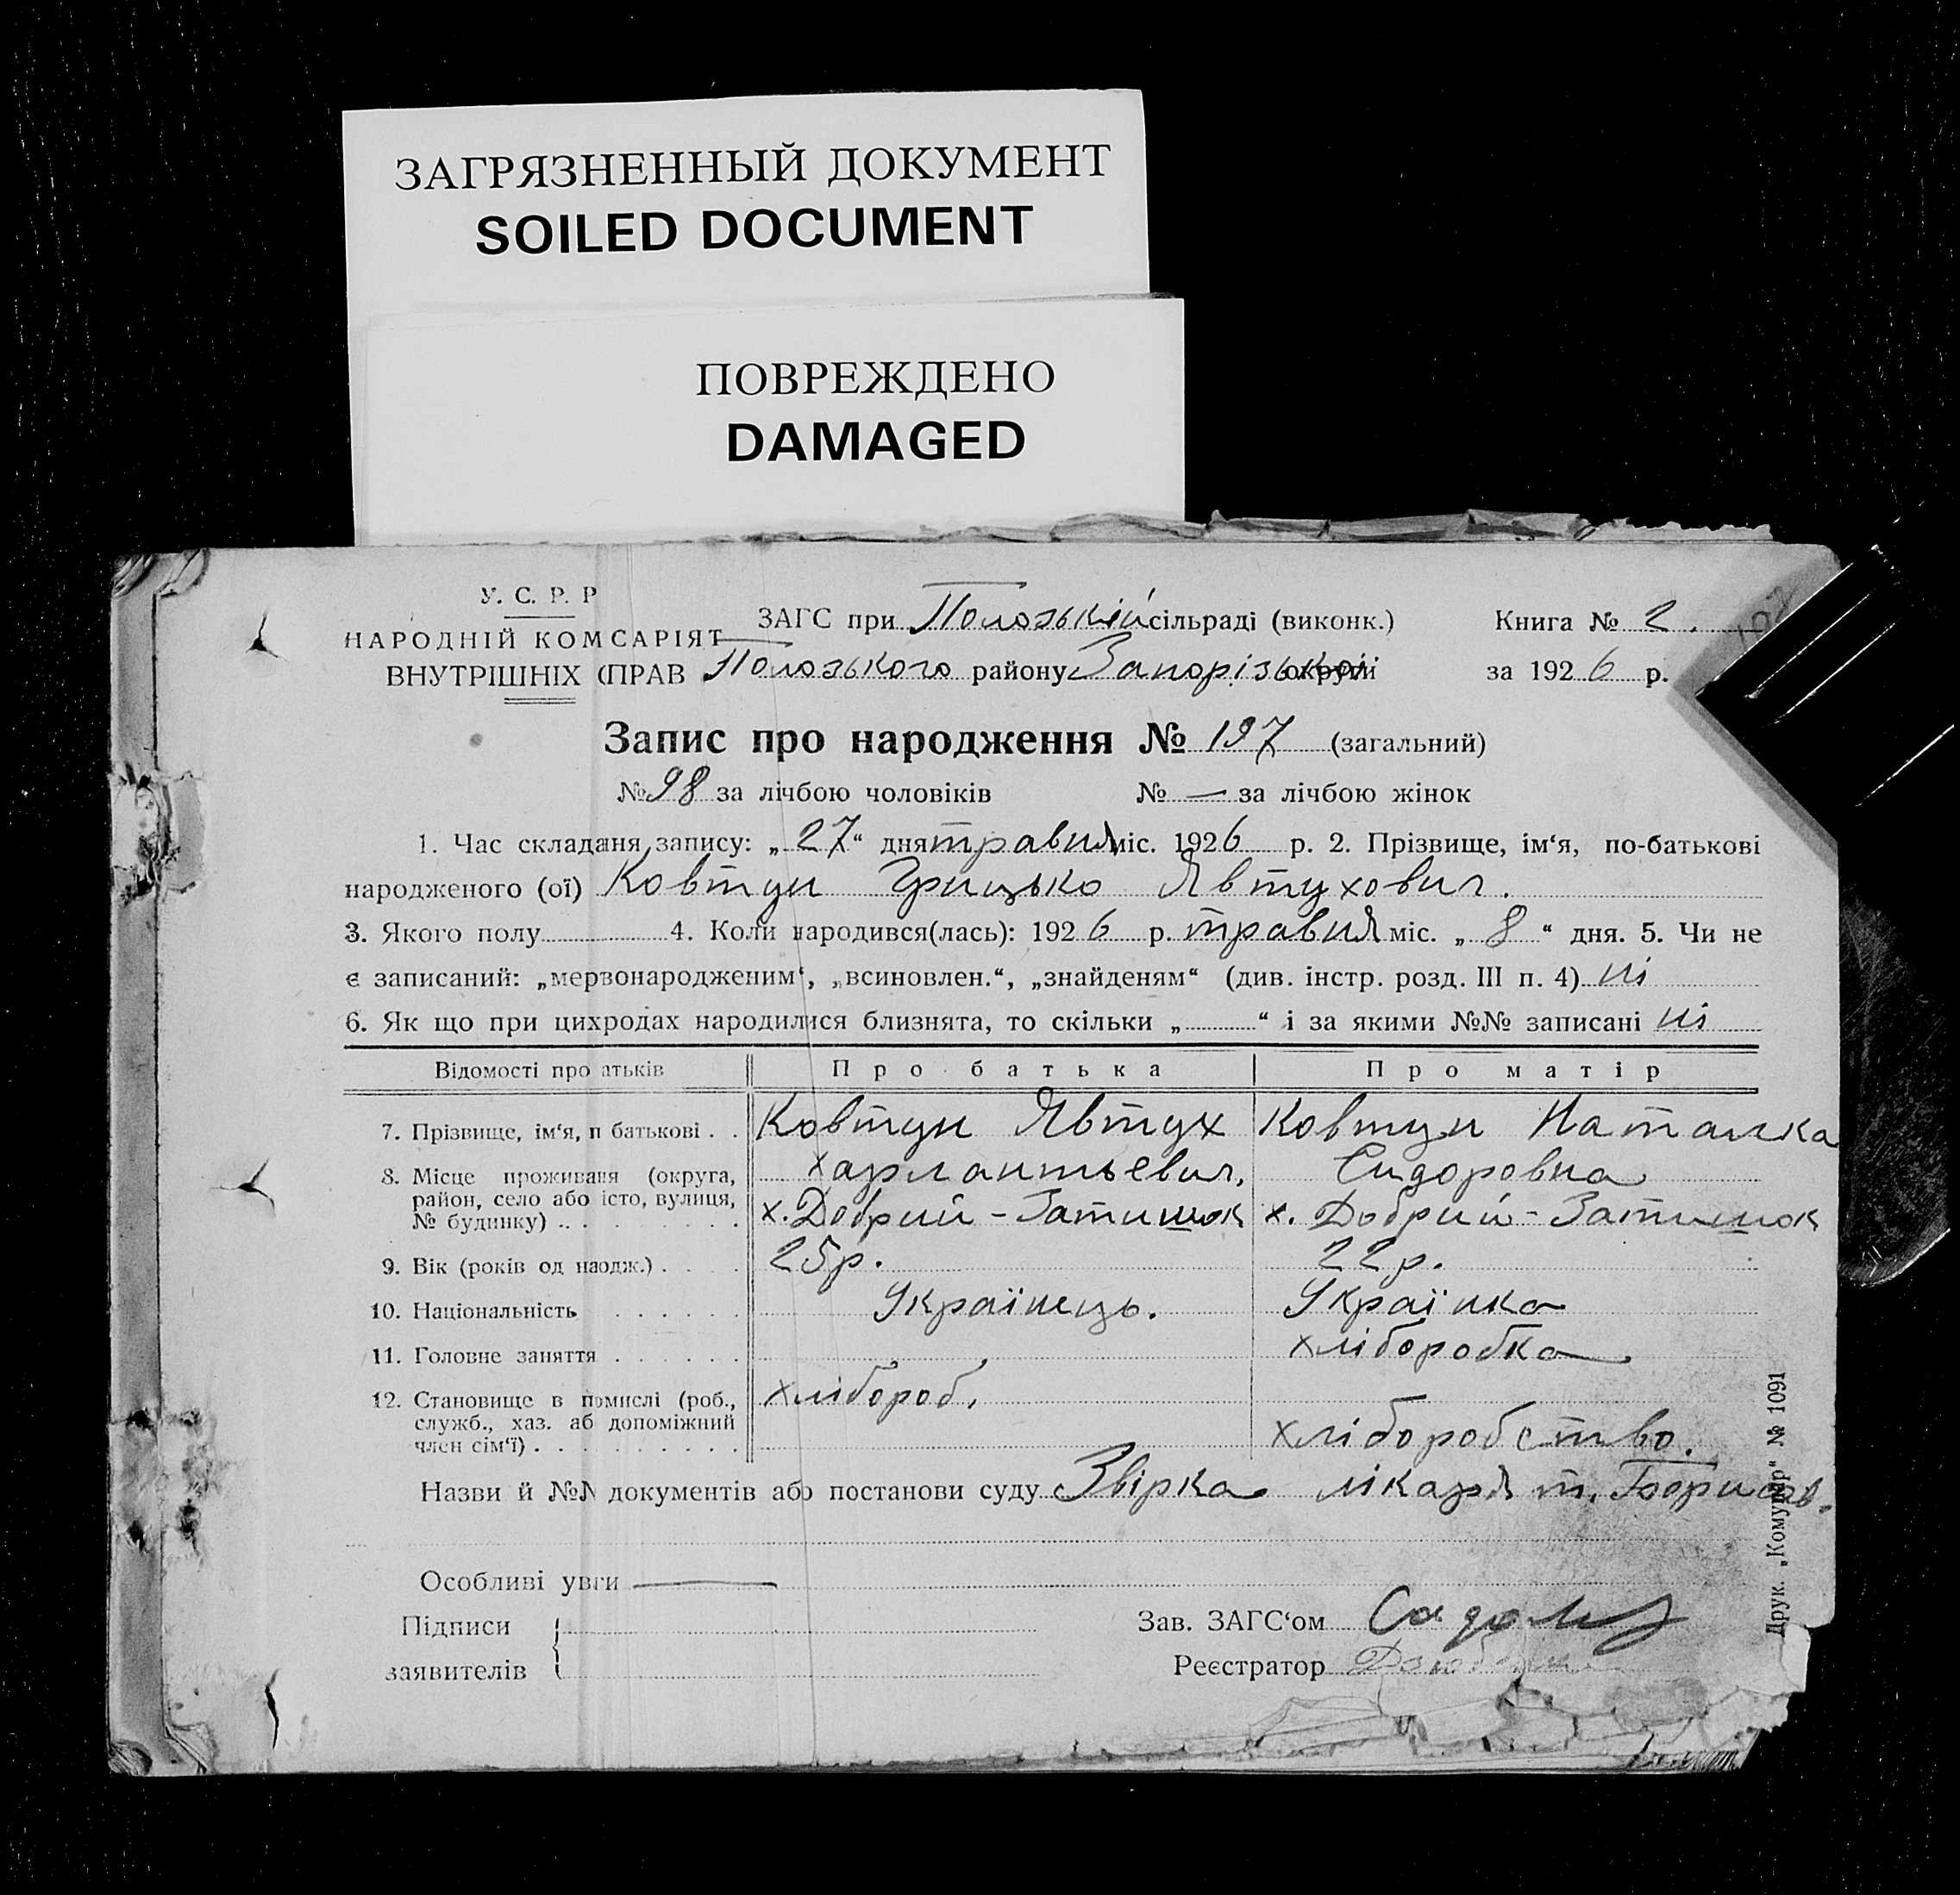 ЗАГРЯЗНЕННЫЙ ДОКУМЕНТ
SOILED DOCUMENT
ПОВРЕЖДЕНО
DAMAGED
У. С. Р. Р
НАРОДНІЙ КОМСАРІЯТ
ВНУТРІШНІХ СПРАВ
ЗАГС при Положській сільраді (виконк.)
Книга № 2.
Положського району Запорізької округи
за 1926 р.
Запис про народження № 197 (загальний)
№ 98 за лічбою чоловіків № — за лічбою жінок
1. Час складаня запису: „27“ дня травня міс. 1926 р. 2. Прізвище, ім‘я, по-батькові
народженого (ої) Ковтун Грицько Явтухович.
3. Якого полу 4. Коли народився(лась): 1926 р. травня міс. „8“ дня. 5. Чи не
є записаний: „мервонародженим“, „всиновлен.“, „знайденям“ (див. інстр. розд. III п. 4) ні
6. Як що при цих родах народилися близнята, то скільки „ “ і за якими №№ записані ні
Відомості про атьків Про батька Про матір
7. Прізвище, ім‘я, п батькові . . Ковтун Явтух Ковтун Наталка
Харлантьевич, Сидоровна
8. Місце проживаня (округа, район, село або істо, вулиця, № будинку) . . х. Добрий-Затишок х. Добрий-Затишок
9. Вік (років од наодж.) . . . 25р. 22р.
10. Національність . . . Українець. Українка
11. Головне заняття . . . хліборобка
12. Становище в помислі (роб., служб., хаз. аб допоміжний член сім‘ї) . . . хлібороб. хліборобство.
Назви й №№ документів або постанови суду Звірка лікаря т. Борисов.
Особливі уваги —
Підписи
заявителів
Зав. ЗАГС‘ом
Реєстратор
Друк. „Комунар“ № 1091